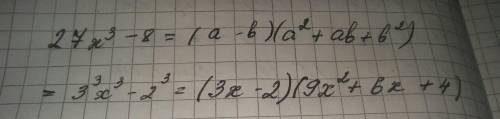 27x³ - 8 = (a - b)(a² + ab + b²)
= 3³x³ - 2³ = (3x - 2)(9x² + 6x + 4)